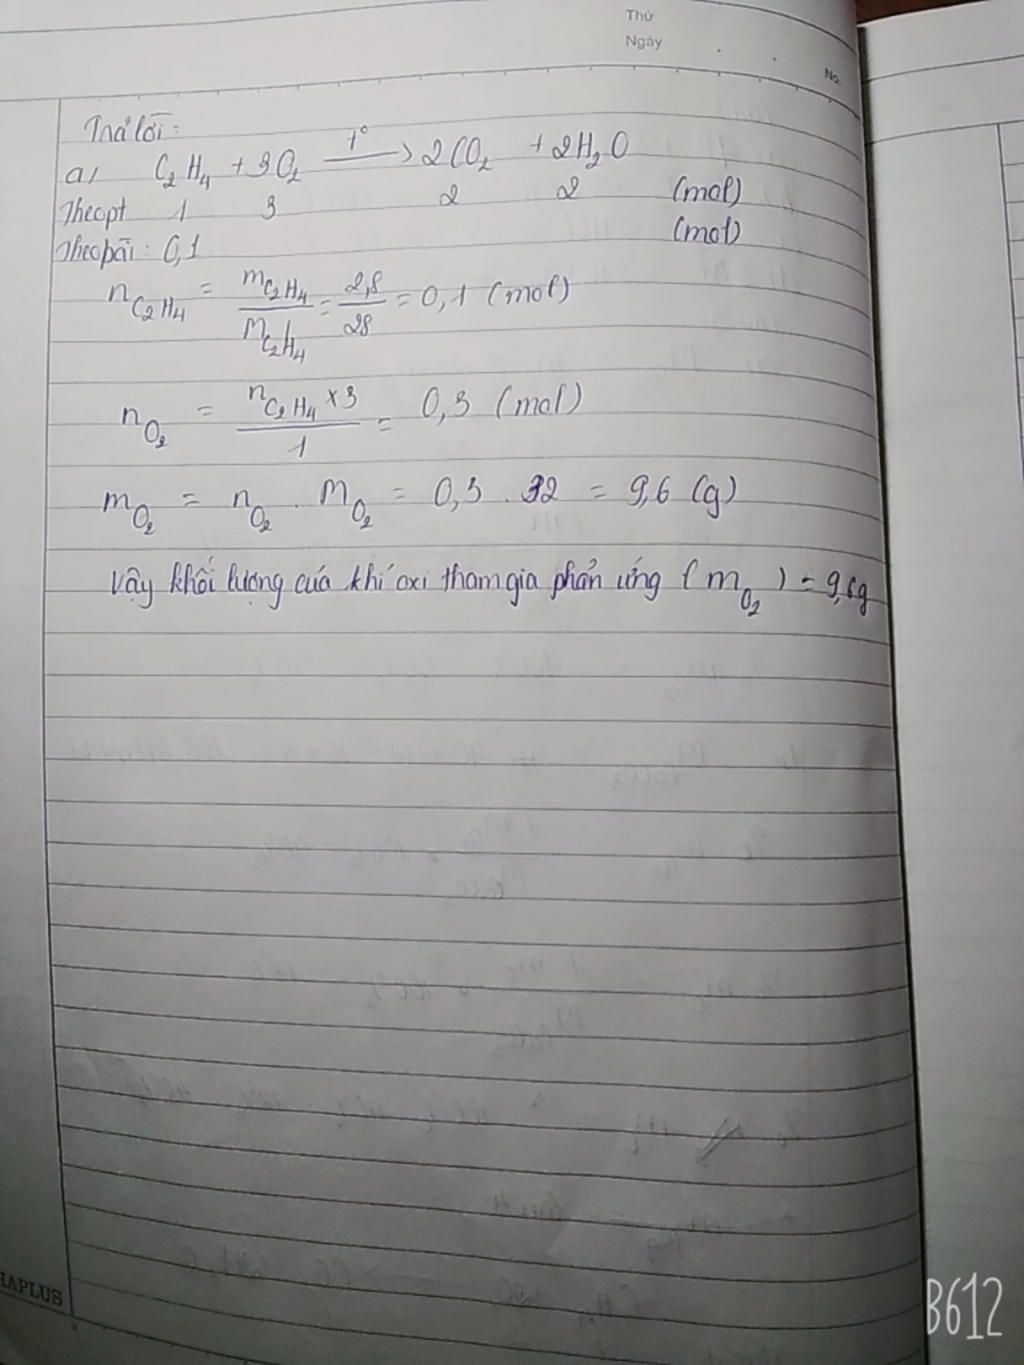 Thứ
Ngày
No.
Trả lời:
a, C₂H₄ + 3O₂ —t°→ 2CO₂ + 2H₂O
Theo pt 1 3 2 2 (mol)
Theo bài: 0,1 (mol)
n C₂H₄ = m C₂H₄ / M C₂H₄ = 2,8 / 28 = 0,1 (mol)
n O₂ = n C₂H₄ × 3 / 1 = 0,3 (mol)
m O₂ = n O₂ . M O₂ = 0,3 . 32 = 9,6 (g)
Vậy khối lượng của khí oxi tham gia phản ứng (m O₂) = 9,6g
HAPLUS
B612